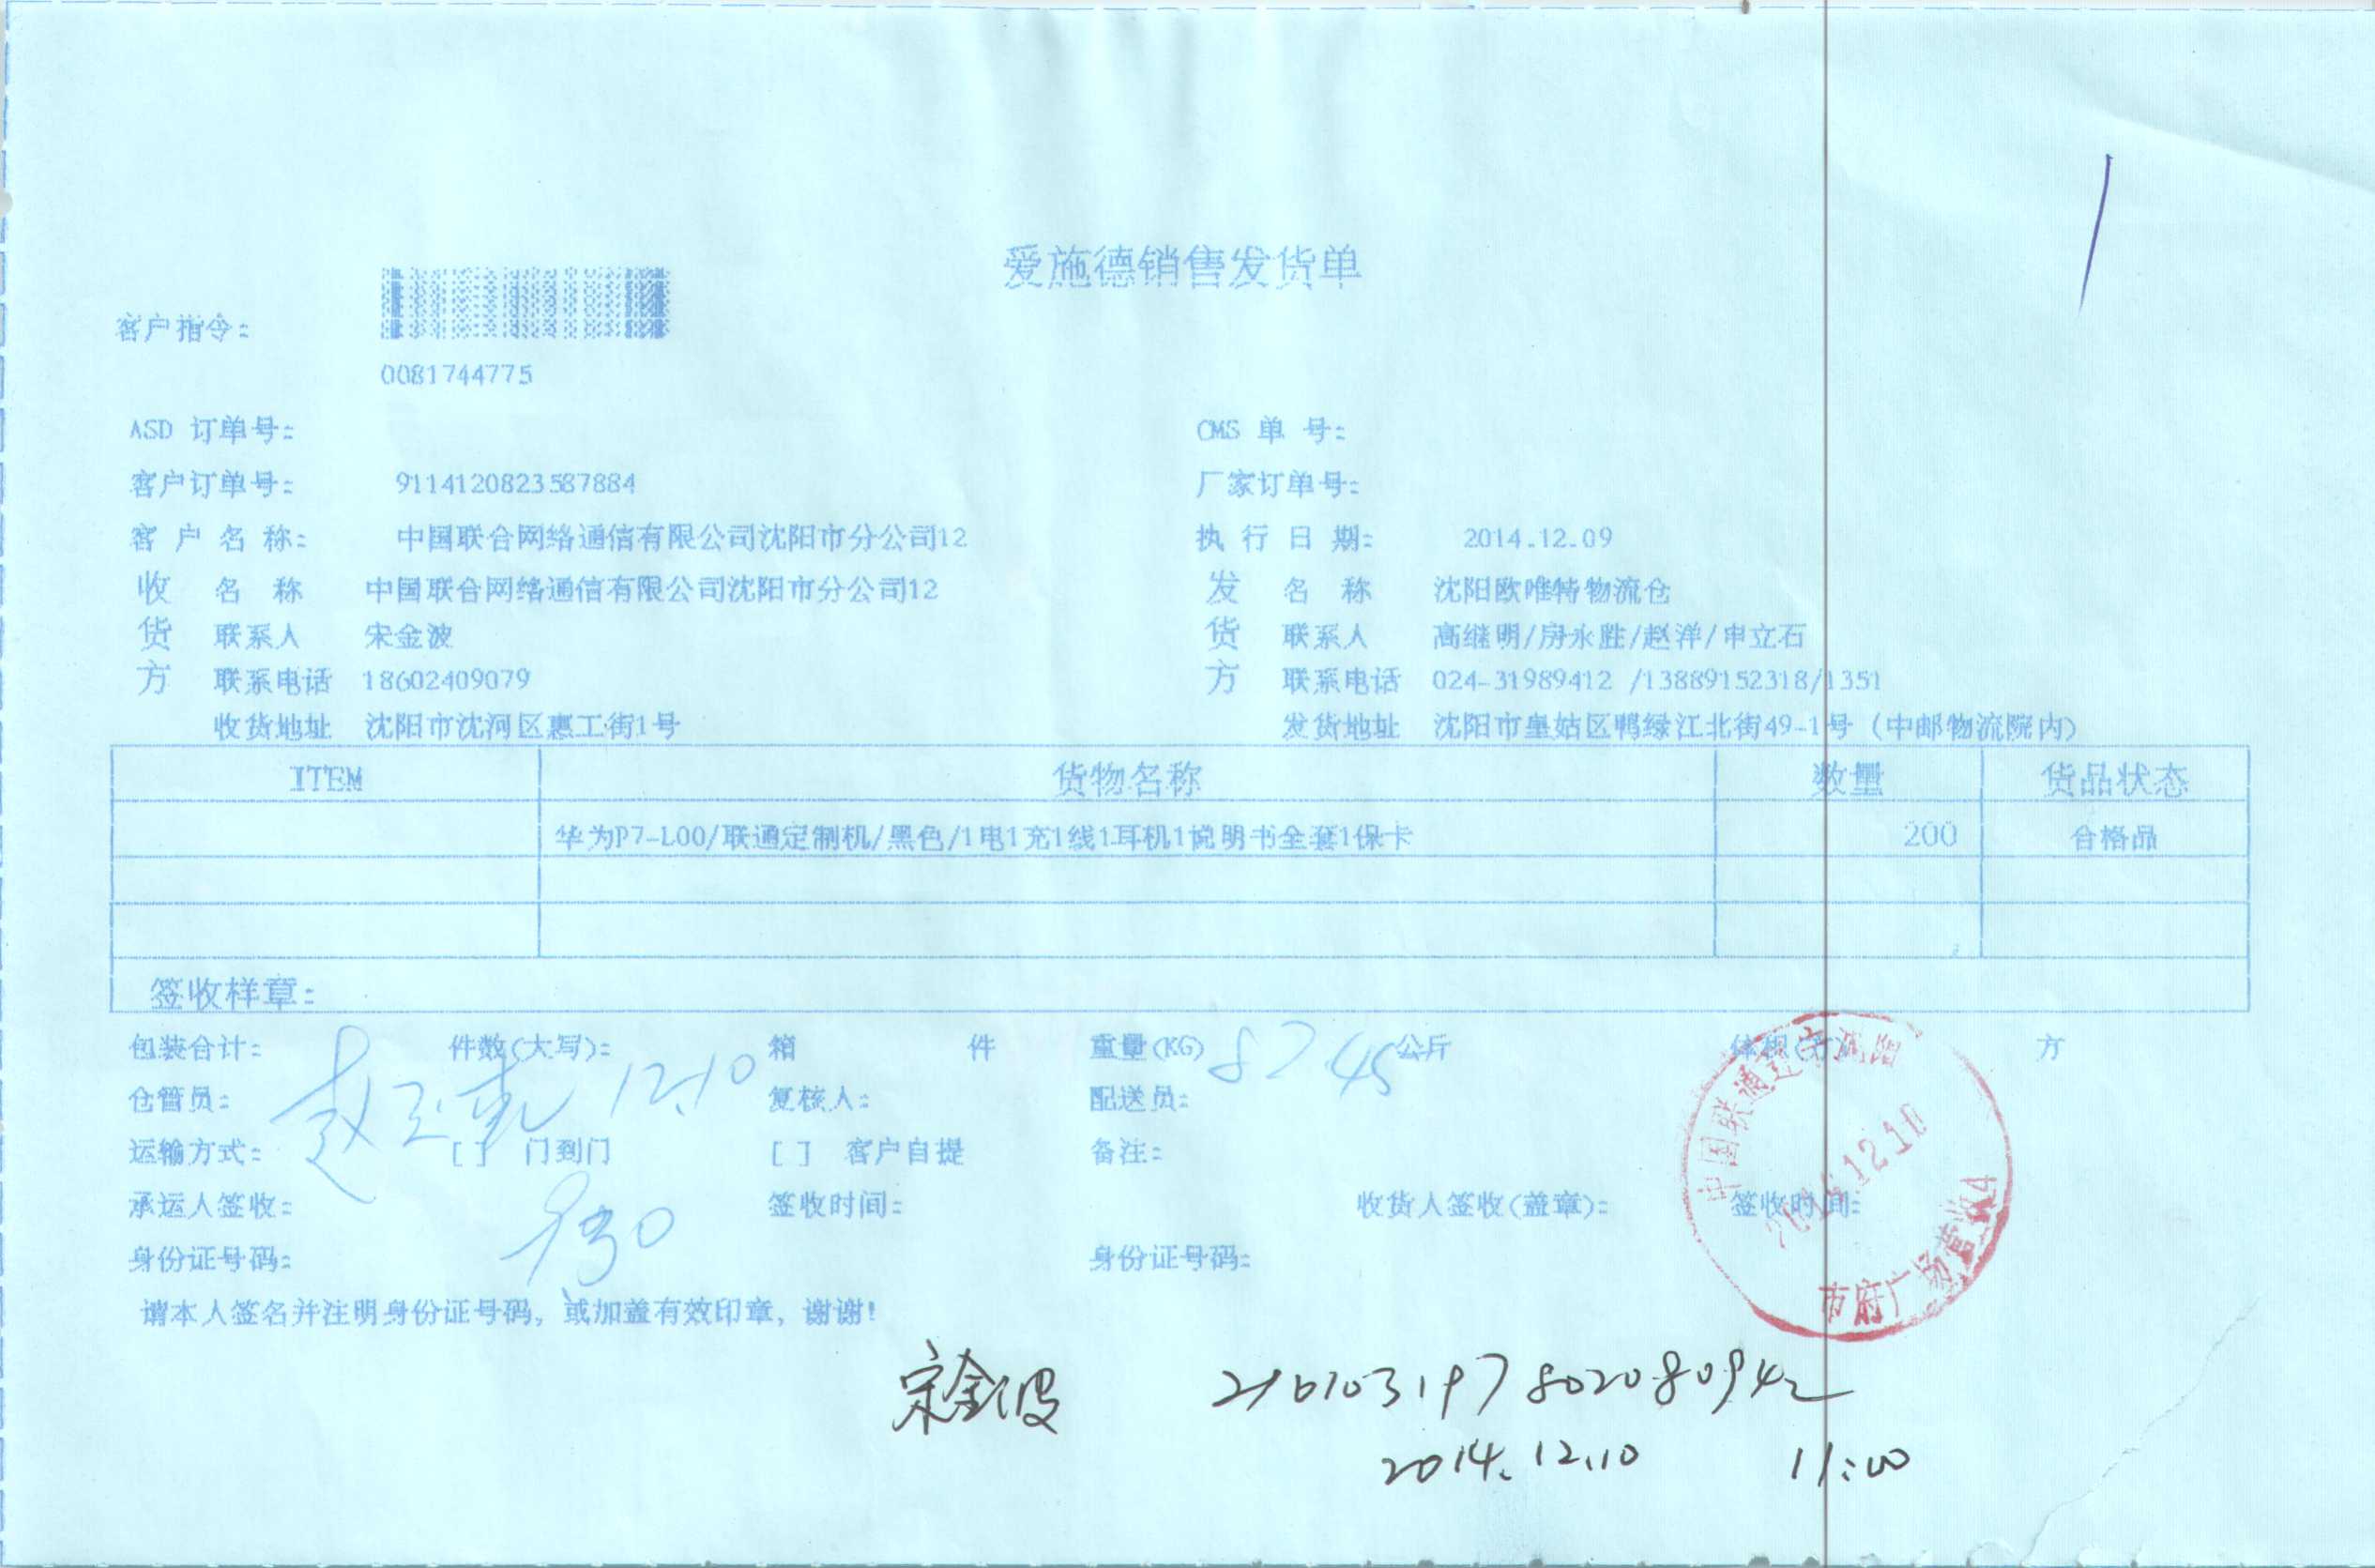 爱施德销售发货单
客户指令:
0081744775
ASD 订单号: CMS 单 号:
客户订单号: 9114120823587884 厂家订单号:
客 户 名 称: 中国联合网络通信有限公司沈阳市分公司12 执 行 日 期: 2014.12.09
收 名 称 中国联合网络通信有限公司沈阳市分公司12 发 名 称 沈阳欧唯特物流仓
货 联系人 宋金波 货 联系人 高继明/房永胜/赵洋/申立石
方 联系电话 18602409079 方 联系电话 024-31989412 /13889152318/1351
收货地址 沈阳市沈河区惠工街1号 发货地址 沈阳市皇姑区鸭绿江北街49-1号 (中邮物流院内)
ITEM 货物名称 数量 货品状态
华为P7-L00/联通定制机/黑色/1电1充1线1耳机1说明书全套1保卡 200 合格品
签收样章:
包装合计: 件数(大写): 箱 件 重量(KG) 公斤 体积(方) 方
仓管员: 12.10 复核人: 配送员:
运输方式: [ ] 门到门 [ ] 客户自提 备注:
承运人签收: 签收时间: 收货人签收(盖章): 签收时间:
身份证号码: 身份证号码:
请本人签名并注明身份证号码, 或加盖有效印章, 谢谢!
中国联通辽宁沈阳
2014.12.10
市府广场营业
宋金波 210103197802080942
2014.12.10 11:00